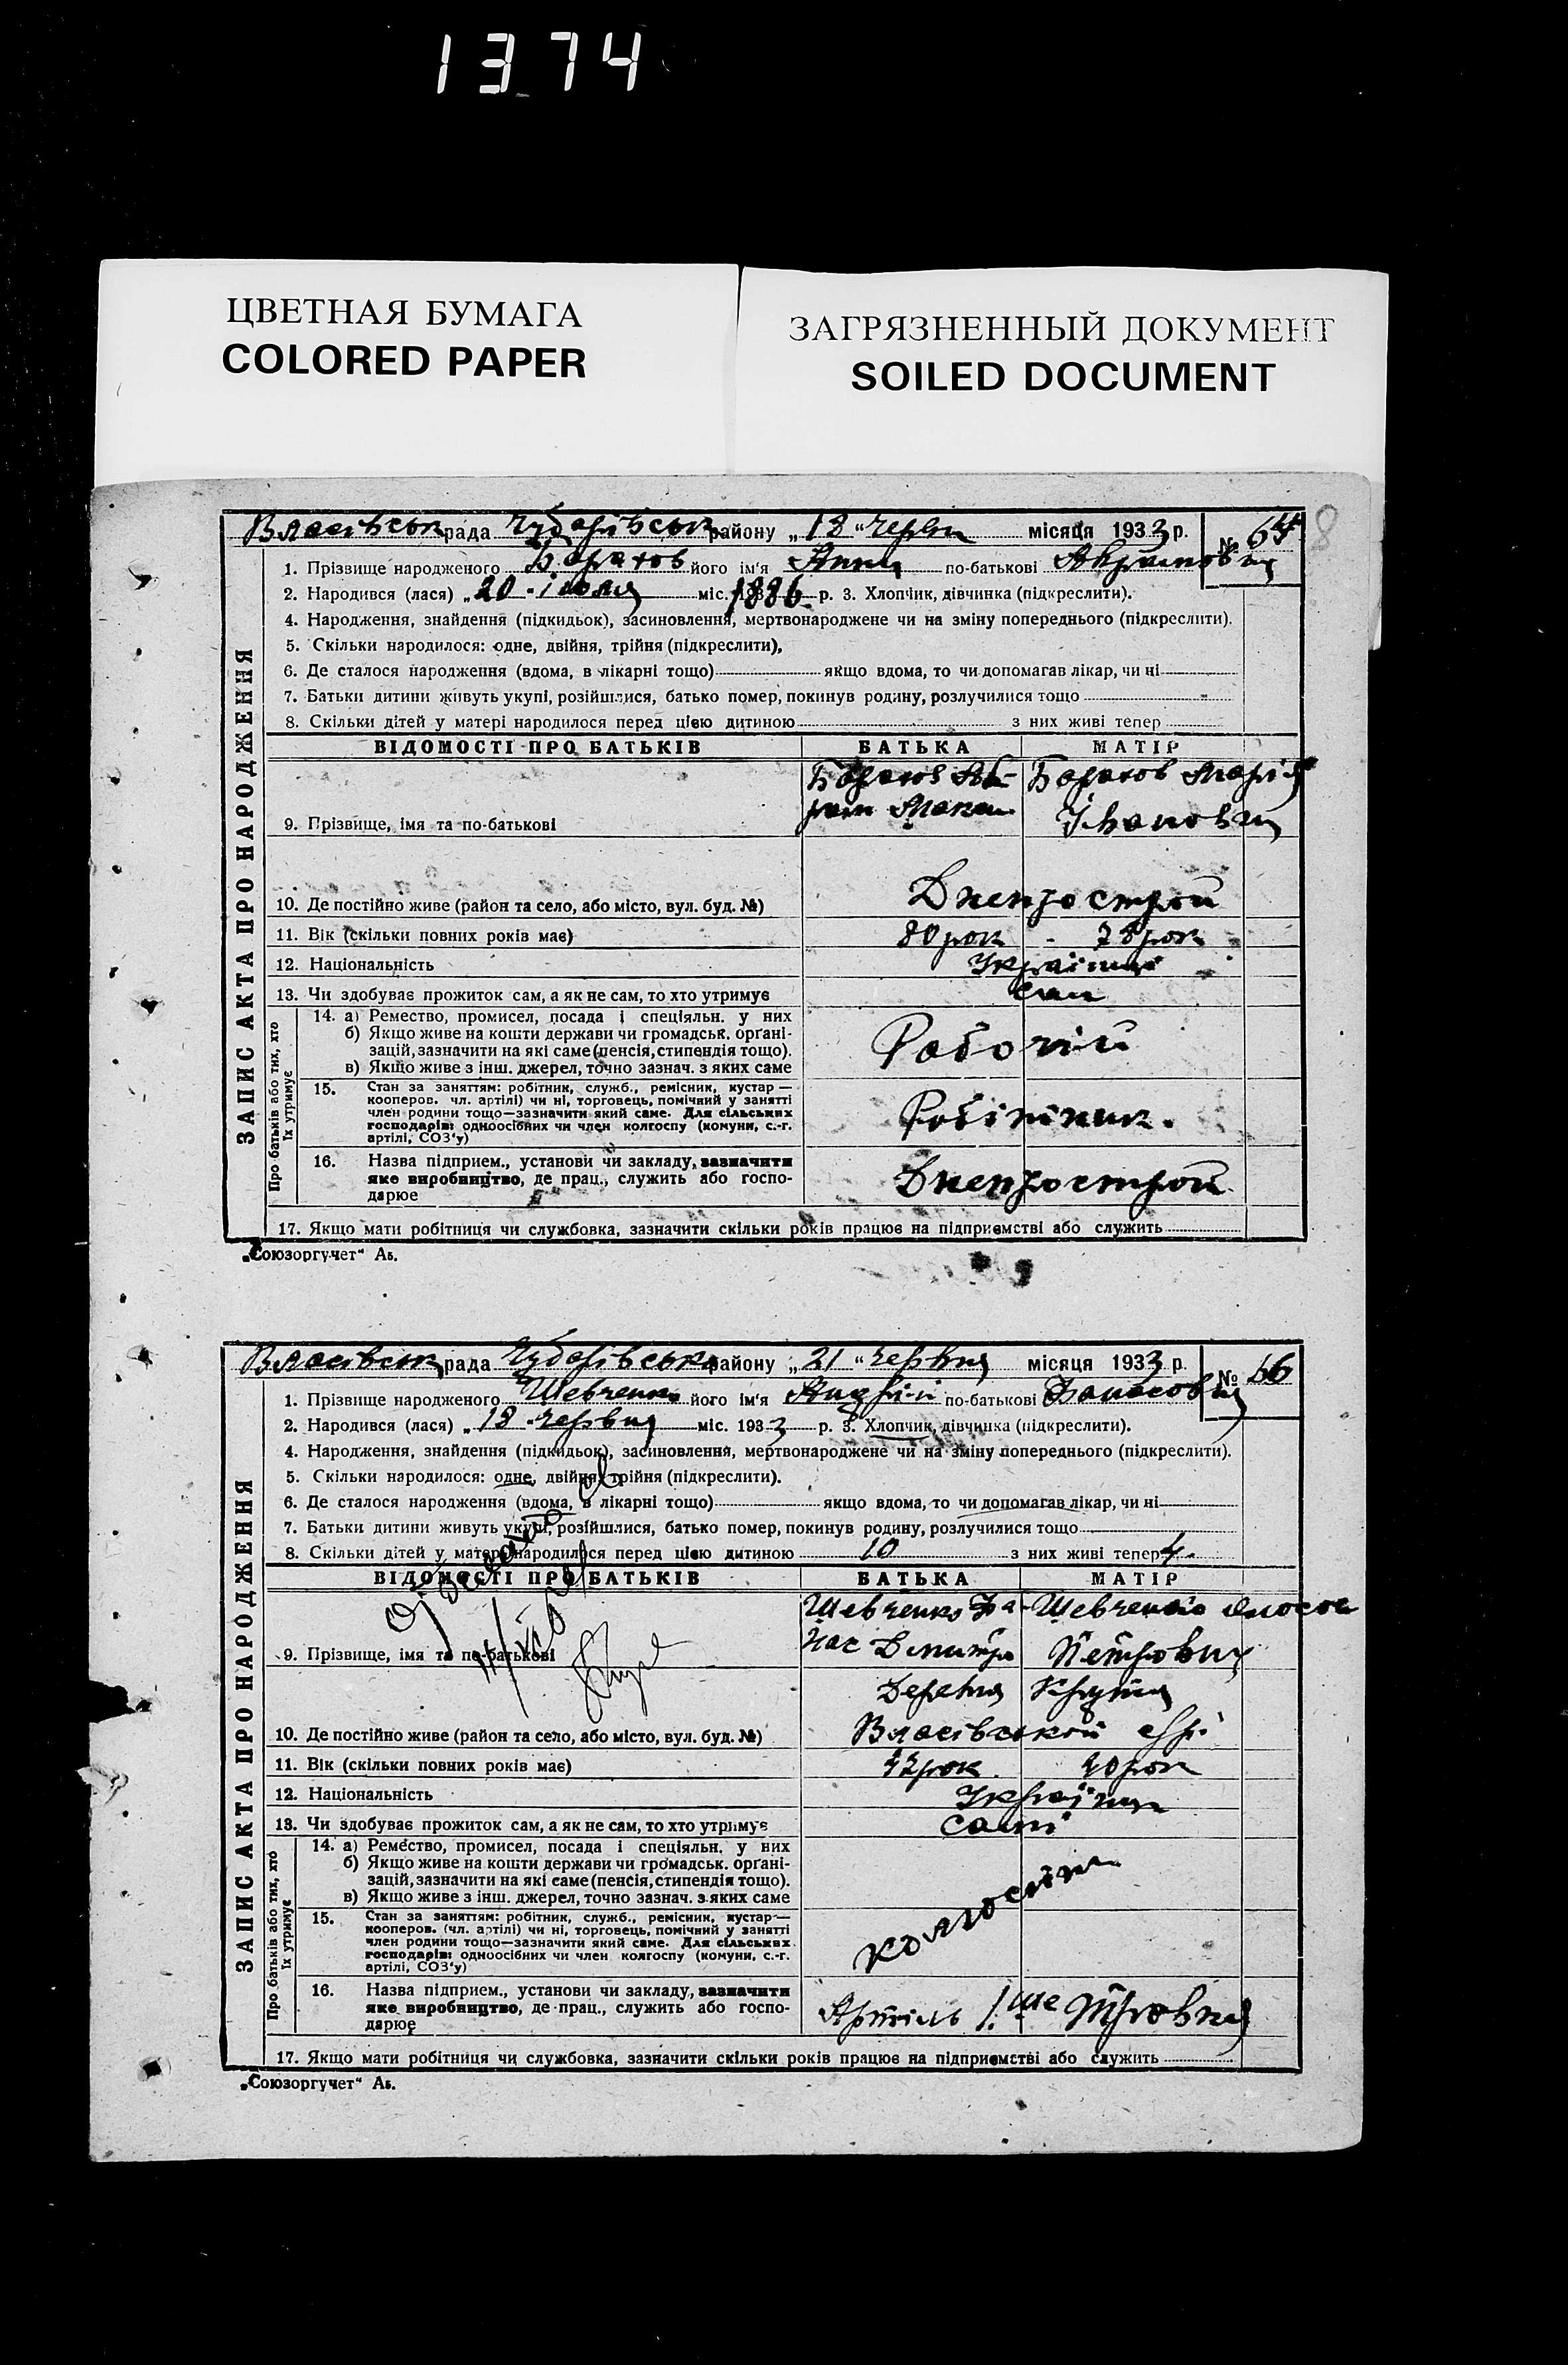 1374
ЦВЕТНАЯ БУМАГА
COLORED PAPER
ЗАГРЯЗНЕННЫЙ ДОКУМЕНТ
SOILED DOCUMENT
8
Власівськ рада Чубарівськ району „18“ Червн місяця 1933 р. № 65
ЗАПИС АКТА ПРО НАРОДЖЕННЯ
1. Прізвище народженого Баратов його ім'я Анна по-батькові
2. Народився (лася) „20 “ іюля міс. 1886. р. 3. Хлопчик, дівчинка (підкреслити).
4. Народження, знайдення (підкидьок), засиновлення, мертвонароджене чи на зміну попереднього (підкреслити).
5. Скільки народилося: одне, двійня, трійня (підкреслити),
6. Де сталося народження (вдома, в лікарні тощо) якщо вдома, то чи допомагав лікар, чи ні
7. Батьки дитини живуть укупі, розійшлися, батько помер, покинув родину, розлучилися тощо
8. Скільки дітей у матері народилося перед цією дитиною з них живі тепер
ВІДОМОСТІ ПРО БАТЬКІВ БАТЬКА МАТІР
Баратов Аб- Баратов Марія
рам Івановна
9. Прізвище, імя та по-батькові
10. Де постійно живе (район та село, або місто, вул. буд. №) Днепрострой
11. Вік (скільки повних років має) 80 рок - 78 рок
12. Національність Українці
13. Чи здобуває прожиток сам, а як не сам, то хто утримує сам
Про батьків або тих, хто їх утримує
14. а) Ремество, промисел, посада і спеціяльн. у них
б) Якщо живе на кошти держави чи громадськ. органі-
зацій, зазначити на які саме (пенсія, стипендія тощо).
в) Якщо живе з інш. джерел, точно зазнач. з яких саме
Рабочій
15. Стан за заняттям: робітник, служб., ремісник, кустар —
кооперов. чл. артілі) чи ні, торговець, помічний у занятті
член родини тощо—зазначити який саме. Для сільських
господарів: одноосібних чи член колгоспу (комуни, с.-г.
артілі, СОЗ'у)
Робітник.
16. Назва підприєм., установи чи закладу, зазначити
яке виробництво, де прац., служить або госпо-
дарює
Днепрострой
17. Якщо мати робітниця чи службовка, зазначити скільки років працює на підприємстві або служить
„Союзоргучет“ Аб.
Власівськ рада Чубарівськ району „21“ Червня місяця 1933 р. № 66
ЗАПИС АКТА ПРО НАРОДЖЕННЯ
1. Прізвище народженого Шевченко його ім'я Андрій по-батькові
2. Народився (лася) „18 “ Червня міс. 1933 р. 3. Хлопчик, дівчинка (підкреслити).
4. Народження, знайдення (підкидьок), засиновлення, мертвонароджене чи на зміну попереднього (підкреслити).
5. Скільки народилося: одне, двійня, трійня (підкреслити).
6. Де сталося народження (вдома, в лікарні тощо) якщо вдома, то чи допомагав лікар, чи ні
7. Батьки дитини живуть укупі, розійшлися, батько помер, покинув родину, розлучилися тощо
8. Скільки дітей у матері народилося перед цією дитиною 10 з них живі тепер 4.
ВІДОМОСТІ ПРО БАТЬКІВ БАТЬКА МАТІР
Шевченко Па- Шевченко
нас Дмитро Петровну
9. Прізвище, імя та по-батькові
Деревня Крутая
10. Де постійно живе (район та село, або місто, вул. буд. №) Власівської с/р.
11. Вік (скільки повних років має) 42 рок. 40 рок
12. Національність Українці
13. Чи здобуває прожиток сам, а як не сам, то хто утримує самі
Про батьків або тих, хто їх утримує
14. а) Ремество, промисел, посада і спеціяльн. у них
б) Якщо живе на кошти держави чи громадськ. органі-
зацій, зазначити на які саме (пенсія, стипендія тощо).
в) Якщо живе з інш. джерел, точно зазнач. з яких саме
15. Стан за заняттям: робітник, служб., ремісник, кустар —
кооперов. (чл. артілі) чи ні, торговець, помічний у занятті
член родини тощо—зазначити який саме. Для сільських
господарів: одноосібних чи член колгоспу (комуни, с.-г.
артілі, СОЗ'у)
колгоспник
16. Назва підприєм., установи чи закладу, зазначити
яке виробництво, де прац., служить або госпо-
дарює
Артіль 1.ше Травня
17. Якщо мати робітниця чи службовка, зазначити скільки років працює на підприємстві або служить
„Союзоргучет“ Аб.